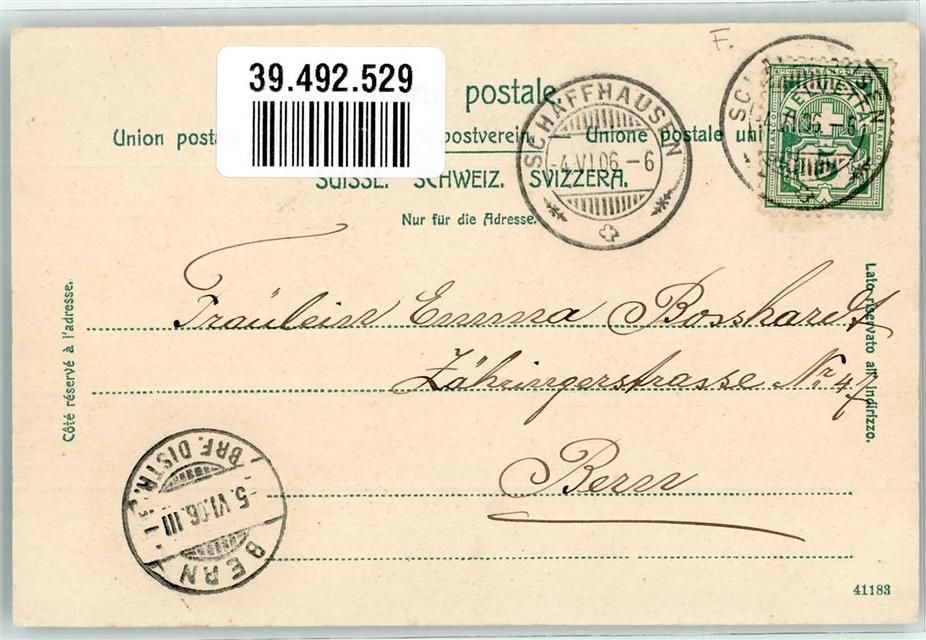 F.
39.492.529
postale.
Union posta postverein. — Unione postale uni
SUISSE. SCHWEIZ. SVIZZERA.
Nur für die Adresse.
SCHAFFHAUSEN
-4.VI.06-6
HELVETIA
FRANCO
5
Côté réservé à l'adresse.
Lato riservato all' indirizzo.
Fräulein Emma Bosshardt
Zähringerstrasse Nr 47
Bern
BERN
BRF. DISTR.
-5.VI.06.III
41183